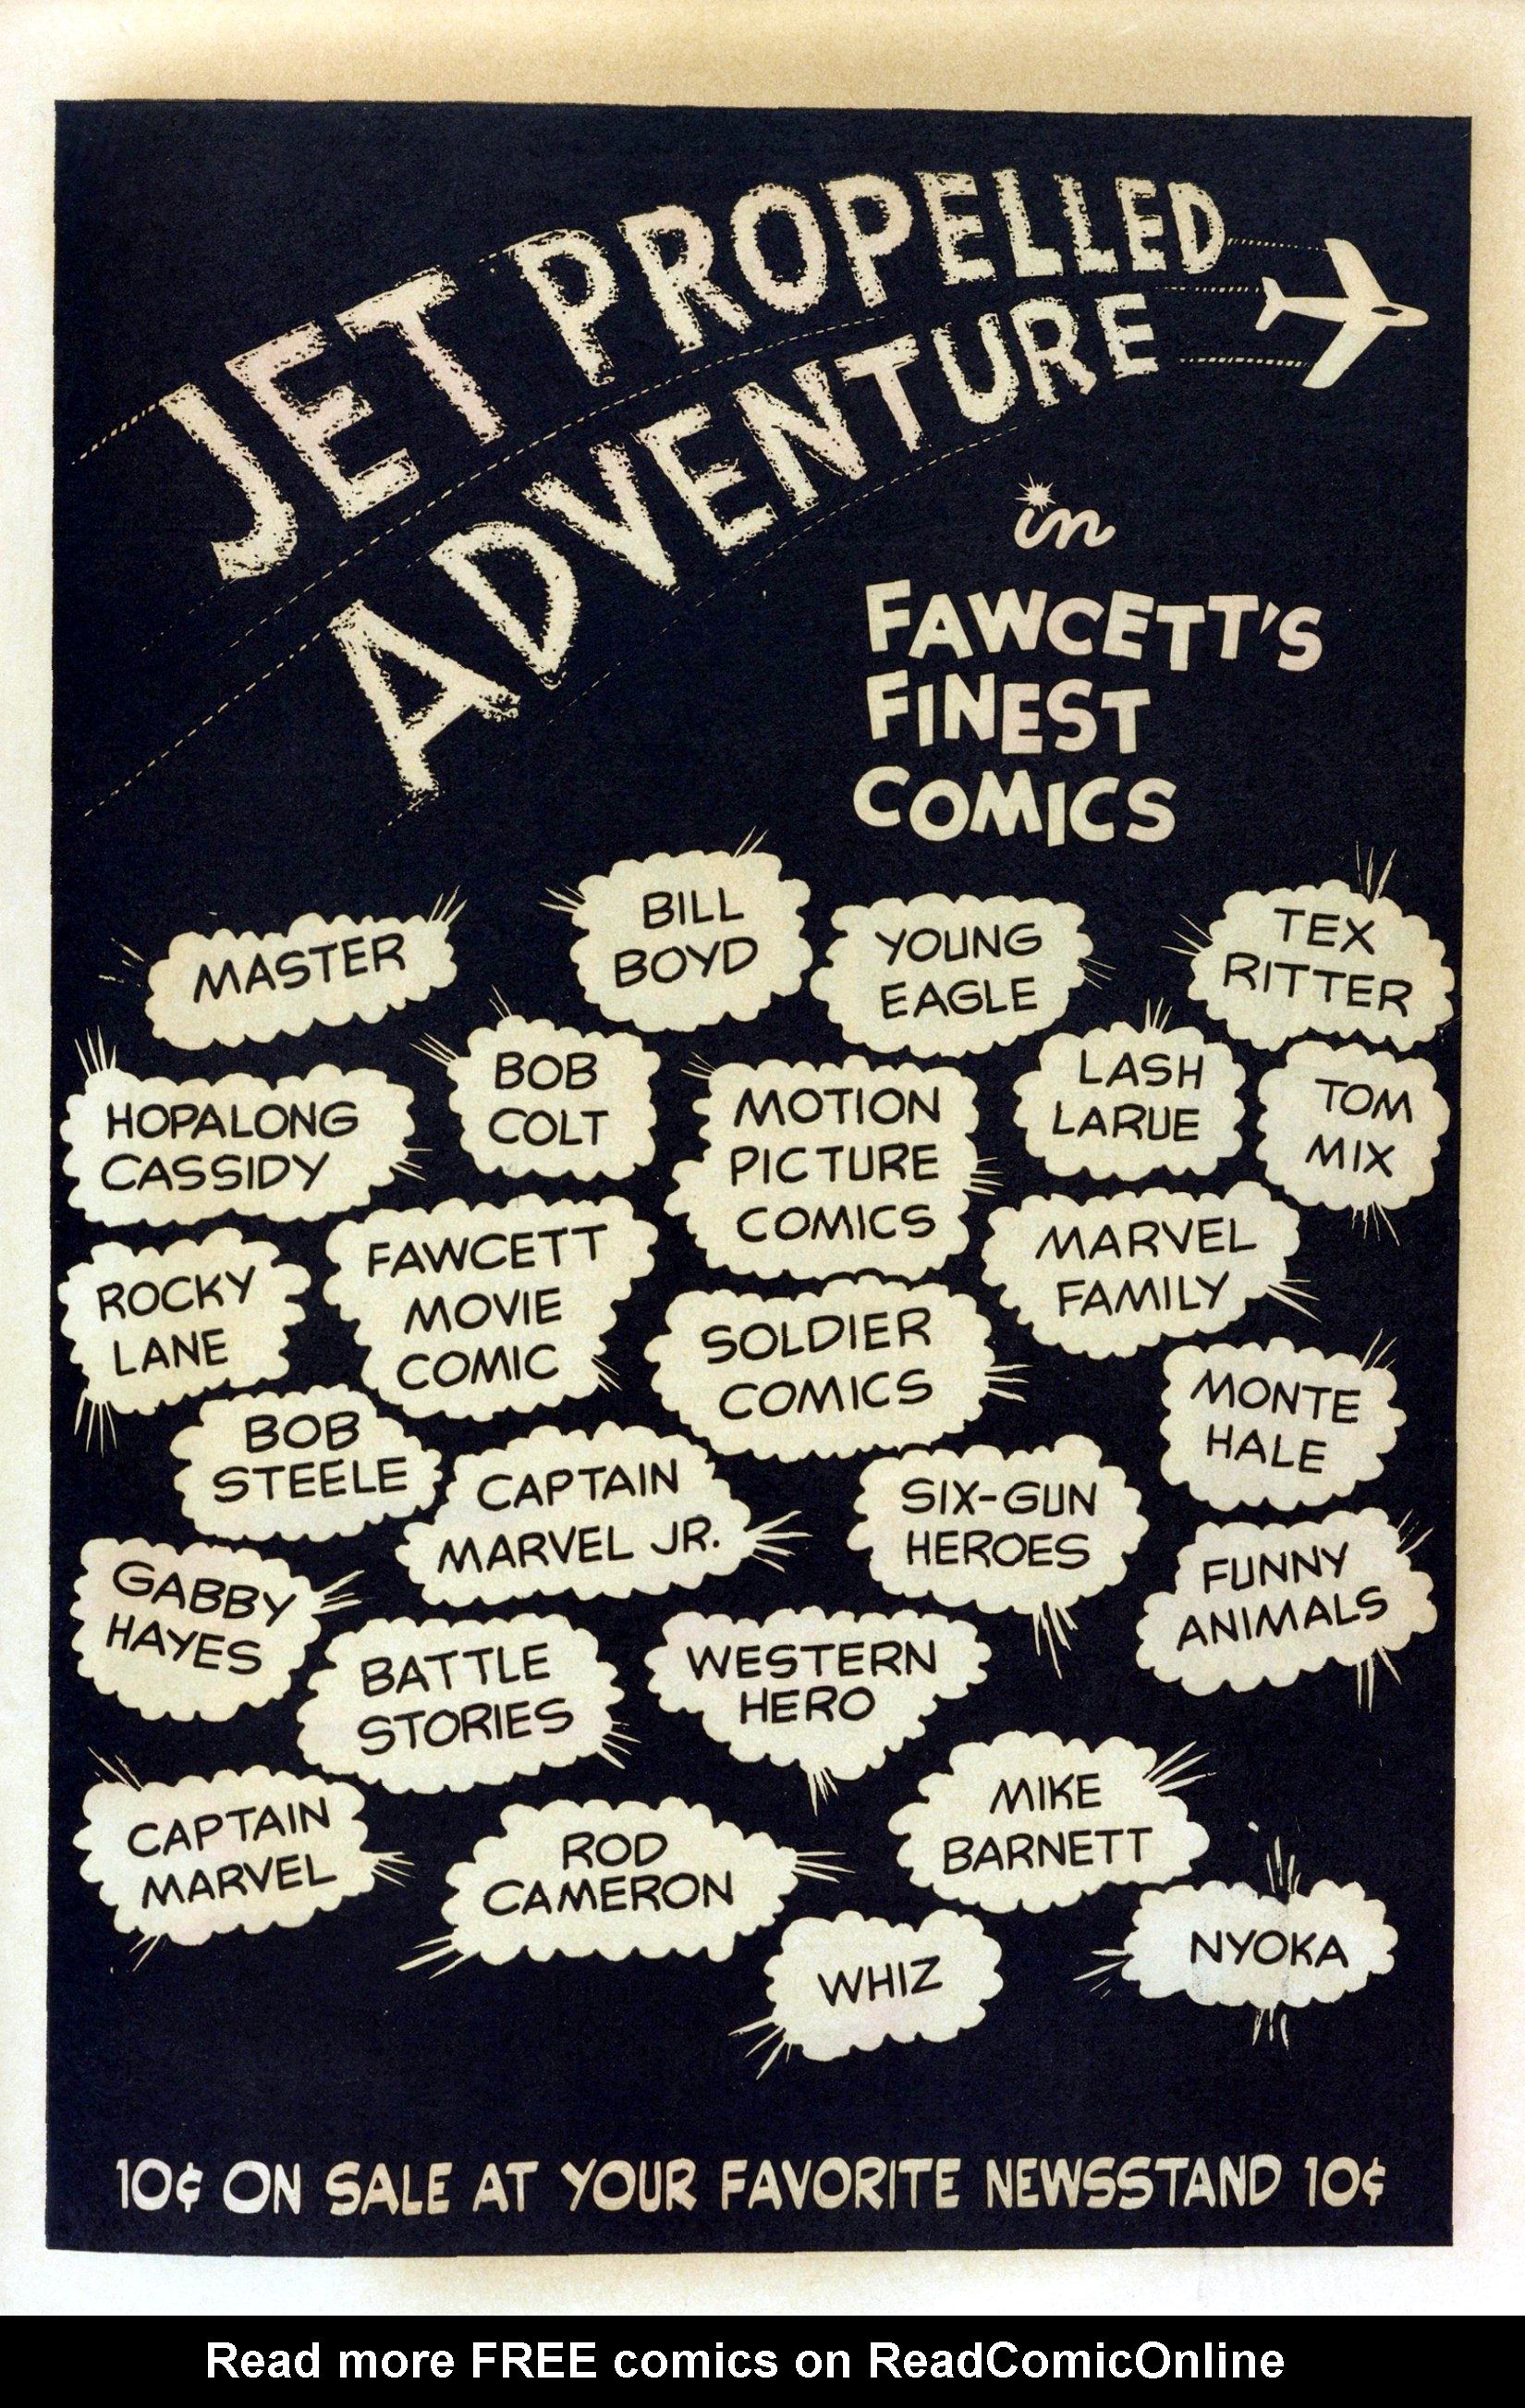 JET PROPELLED
ADVENTURE
in
FAWCETT'S
FINEST
COMICS
MASTER
BILL
BOYD
YOUNG
EAGLE
TEX
RITTER
HOPALONG
CASSIDY
BOB
COLT
MOTION
PICTURE
COMICS
LASH
LARUE
TOM
MIX
ROCKY
LANE
FAWCETT
MOVIE
COMIC
SOLDIER
COMICS
MARVEL
FAMILY
MONTE
HALE
BOB
STEELE
CAPTAIN
MARVEL JR.
SIX-GUN
HEROES
FUNNY
ANIMALS
GABBY
HAYES
BATTLE
STORIES
WESTERN
HERO
CAPTAIN
MARVEL
ROD
CAMERON
MIKE
BARNETT
WHIZ
NYOKA
10¢ ON SALE AT YOUR FAVORITE NEWSSTAND 10¢
Read more FREE comics on ReadComicOnline